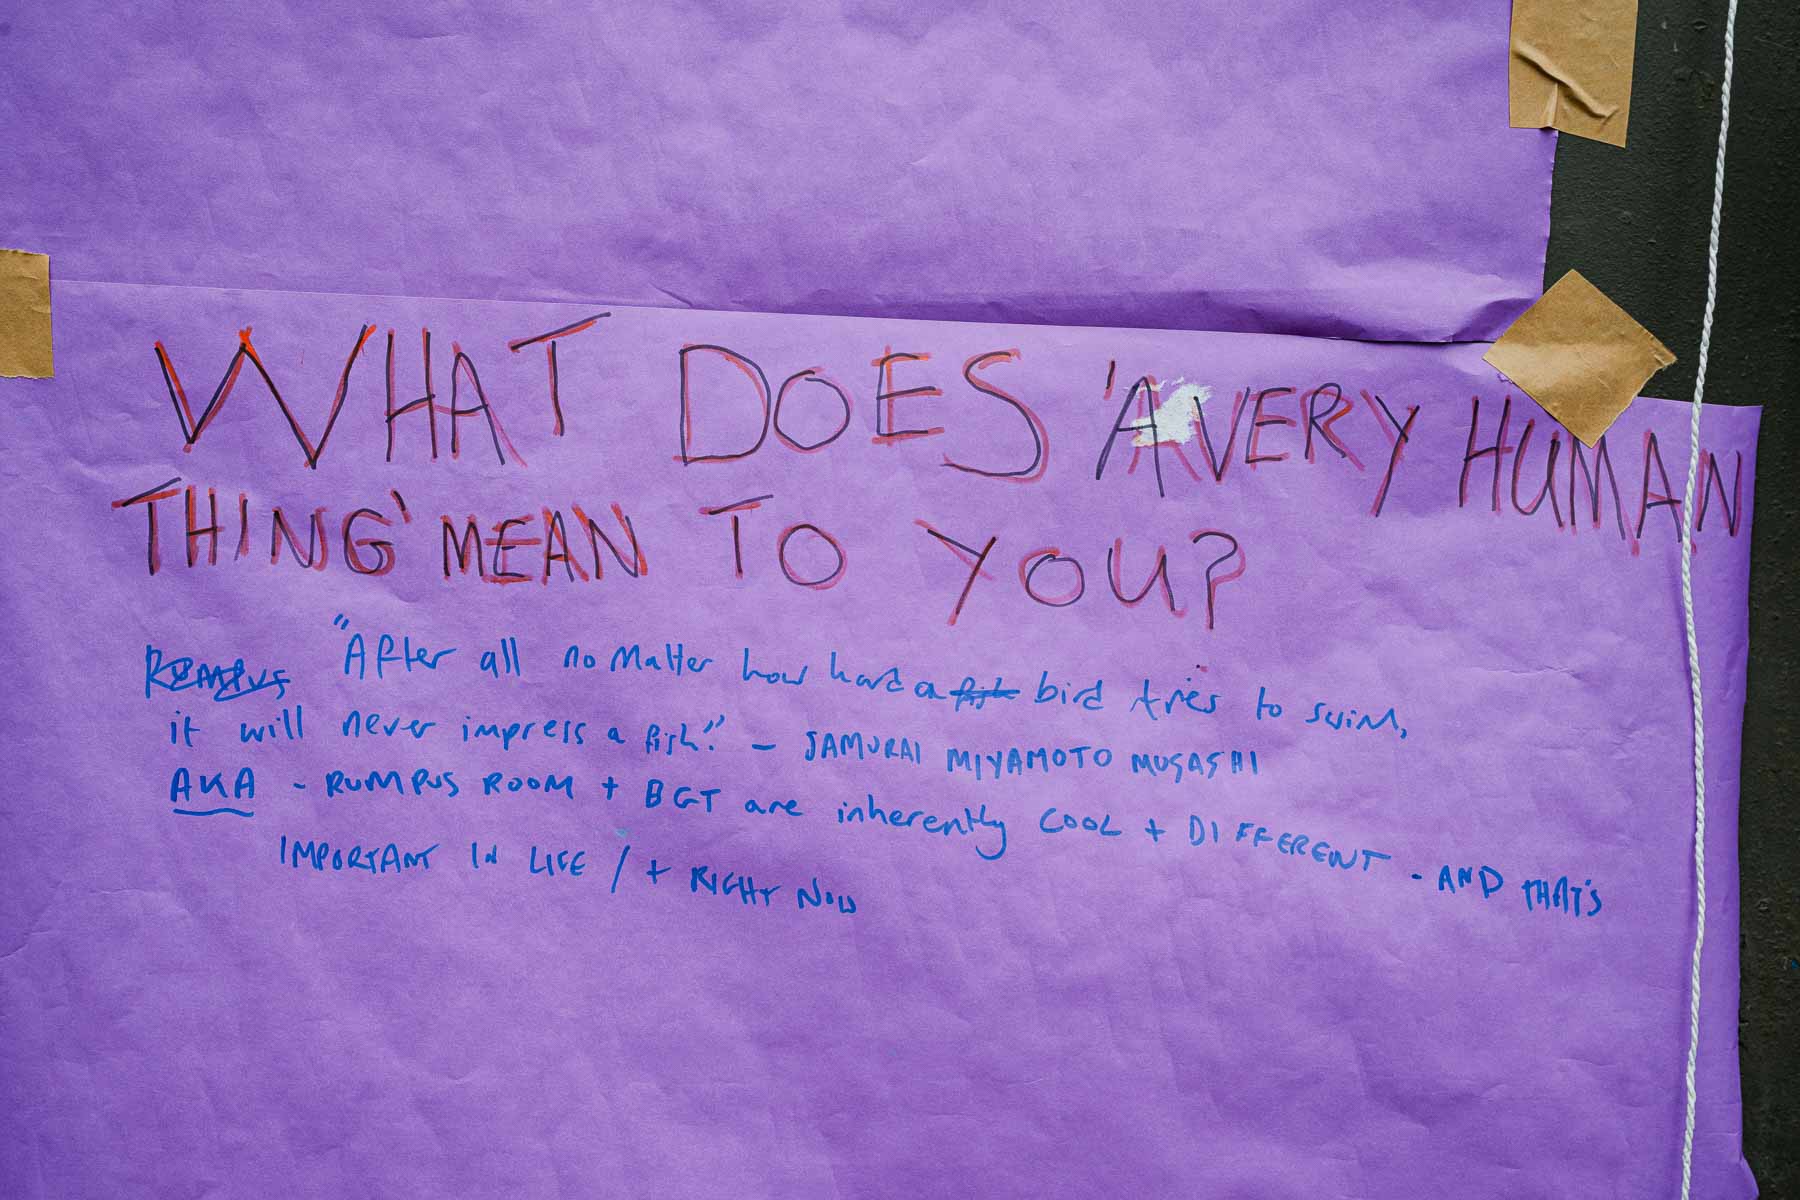 WHAT DOES 'A VERY HUMAN
THING' MEAN TO YOU?
"After all no matter how hard a bird tries to swim,
it will never impress a fish." - SAMURAI MIYAMOTO MUSASHI
AKA - RUMPUS ROOM + BGT are inherently COOL + DIFFERENT - AND THAT'S
IMPORTANT IN LIFE / + RIGHT NOW